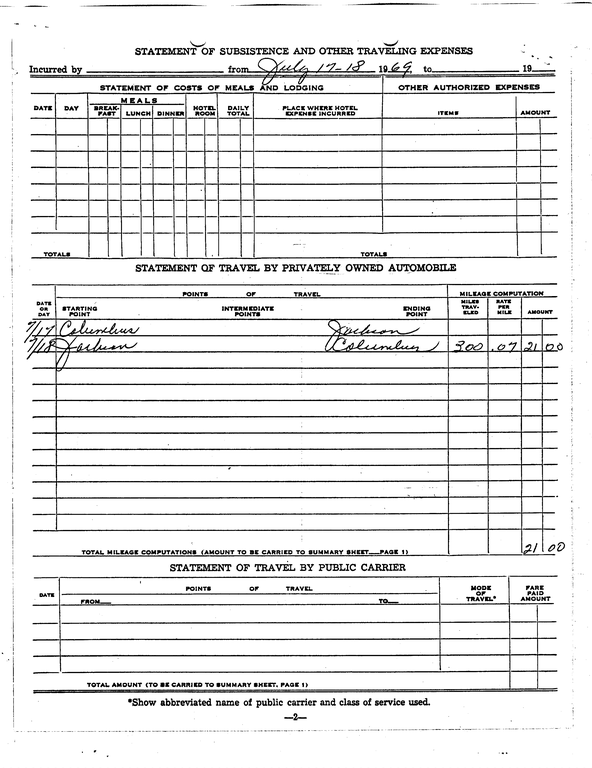 STATEMENT OF SUBSISTENCE AND OTHER TRAVELING EXPENSES
Incurred by from July 17-18 1969, to 19
STATEMENT OF COSTS OF MEALS AND LODGING OTHER AUTHORIZED EXPENSES
DATE DAY MEALS BREAK-FAST LUNCH DINNER HOTEL ROOM DAILY TOTAL PLACE WHERE HOTEL EXPENSE INCURRED ITEMS AMOUNT
TOTALS TOTALS
STATEMENT OF TRAVEL BY PRIVATELY OWNED AUTOMOBILE
POINTS OF TRAVEL MILEAGE COMPUTATION
DATE OR DAY STARTING POINT INTERMEDIATE POINTS ENDING POINT MILES TRAV-ELED RATE PER MILE AMOUNT
7/17 Columbus Jackson
7/18 Jackson Columbus 300 .07 21 00
TOTAL MILEAGE COMPUTATIONS (AMOUNT TO BE CARRIED TO SUMMARY SHEET—PAGE 1) 21 00
STATEMENT OF TRAVEL BY PUBLIC CARRIER
DATE POINTS OF TRAVEL MODE OF TRAVEL* FARE PAID AMOUNT
FROM— TO—
TOTAL AMOUNT (TO BE CARRIED TO SUMMARY SHEET, PAGE 1)
*Show abbreviated name of public carrier and class of service used.
—2—